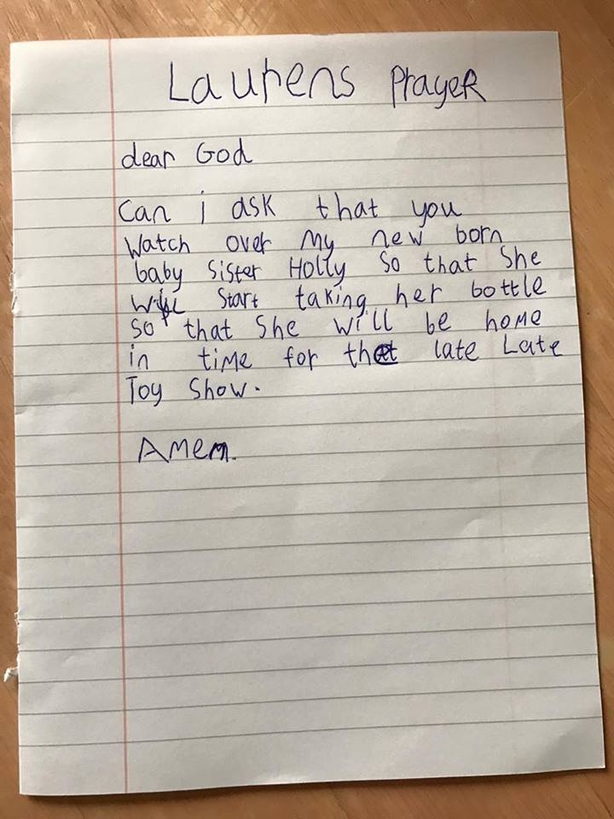 Laurens Prayer
dear God
Can i ask that you
Watch over my new born
baby Sister Holly So that She
will Start taking her bottle
so that She will be home
in time for that late Late
Toy Show.
Amem.